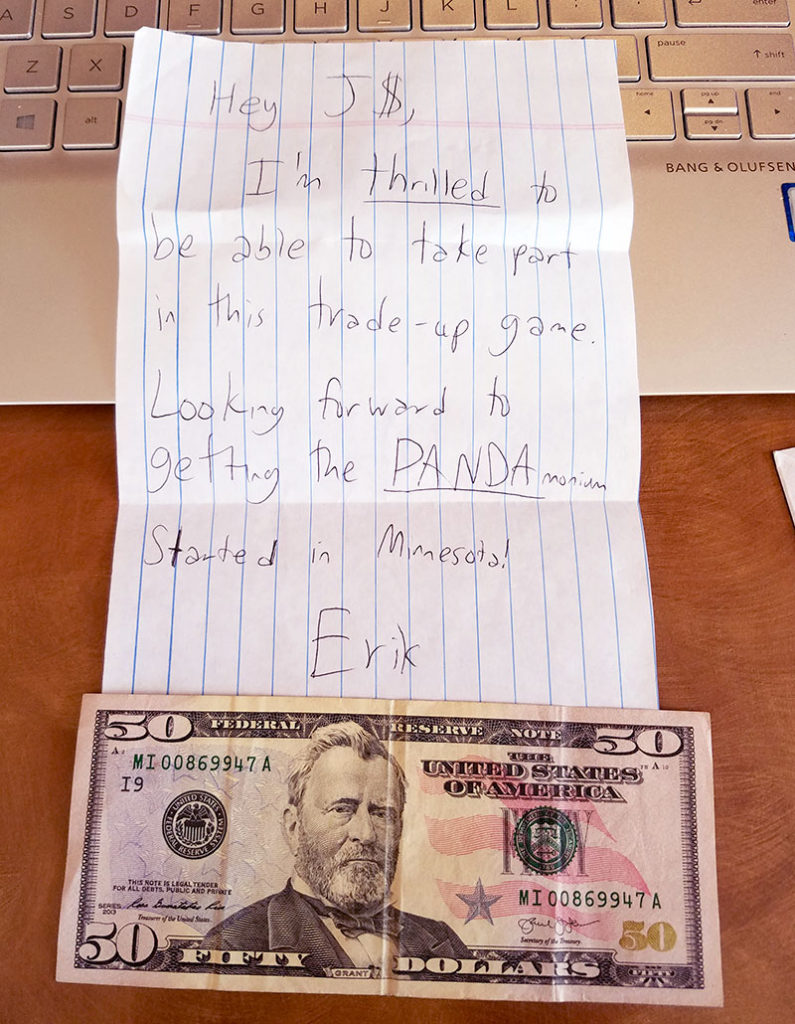 A S D F G H J K L enter
Z X pause ↑ shift
alt home pg up end
pg dn
BANG & OLUFSEN
Hey J$,
I'm thrilled to
be able to take part
in this trade-up game.
Looking forward to
getting the PANDAmonium
Started in Minnesota!
Erik
50 FEDERAL RESERVE NOTE 50
MI 00869947 A
I9
THE
UNITED STATES
OF AMERICA
THIS NOTE IS LEGAL TENDER
FOR ALL DEBTS, PUBLIC AND PRIVATE
MI 00869947 A
SERIES
2013
Treasurer of the United States
Secretary of the Treasury
50 50
FIFTY GRANT DOLLARS